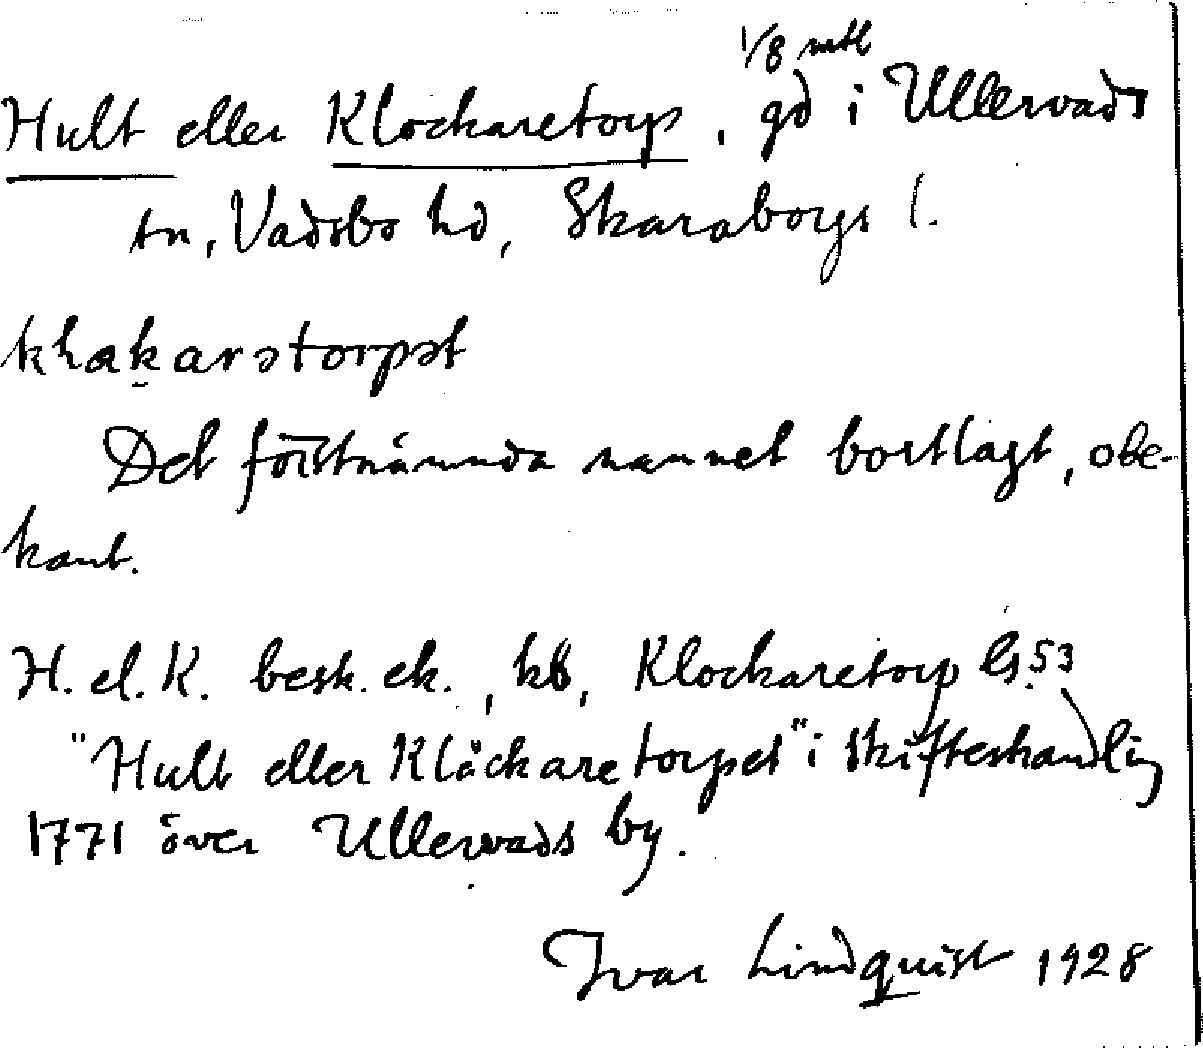 1/8 mtl
Hult eller Klockaretorp, gd i Ullervads
sn, Vadsbo hd, Skaraborgs l.
Det förstnämnda namnet bortlagt, obe-
kant.
H. el. K. besk. ek., kb, Klockaretorp Gs. 53
"Hult eller Klåckaretorpet" i skifteshandling
1771 över Ullervads by.
Ivar Lindquist 1928